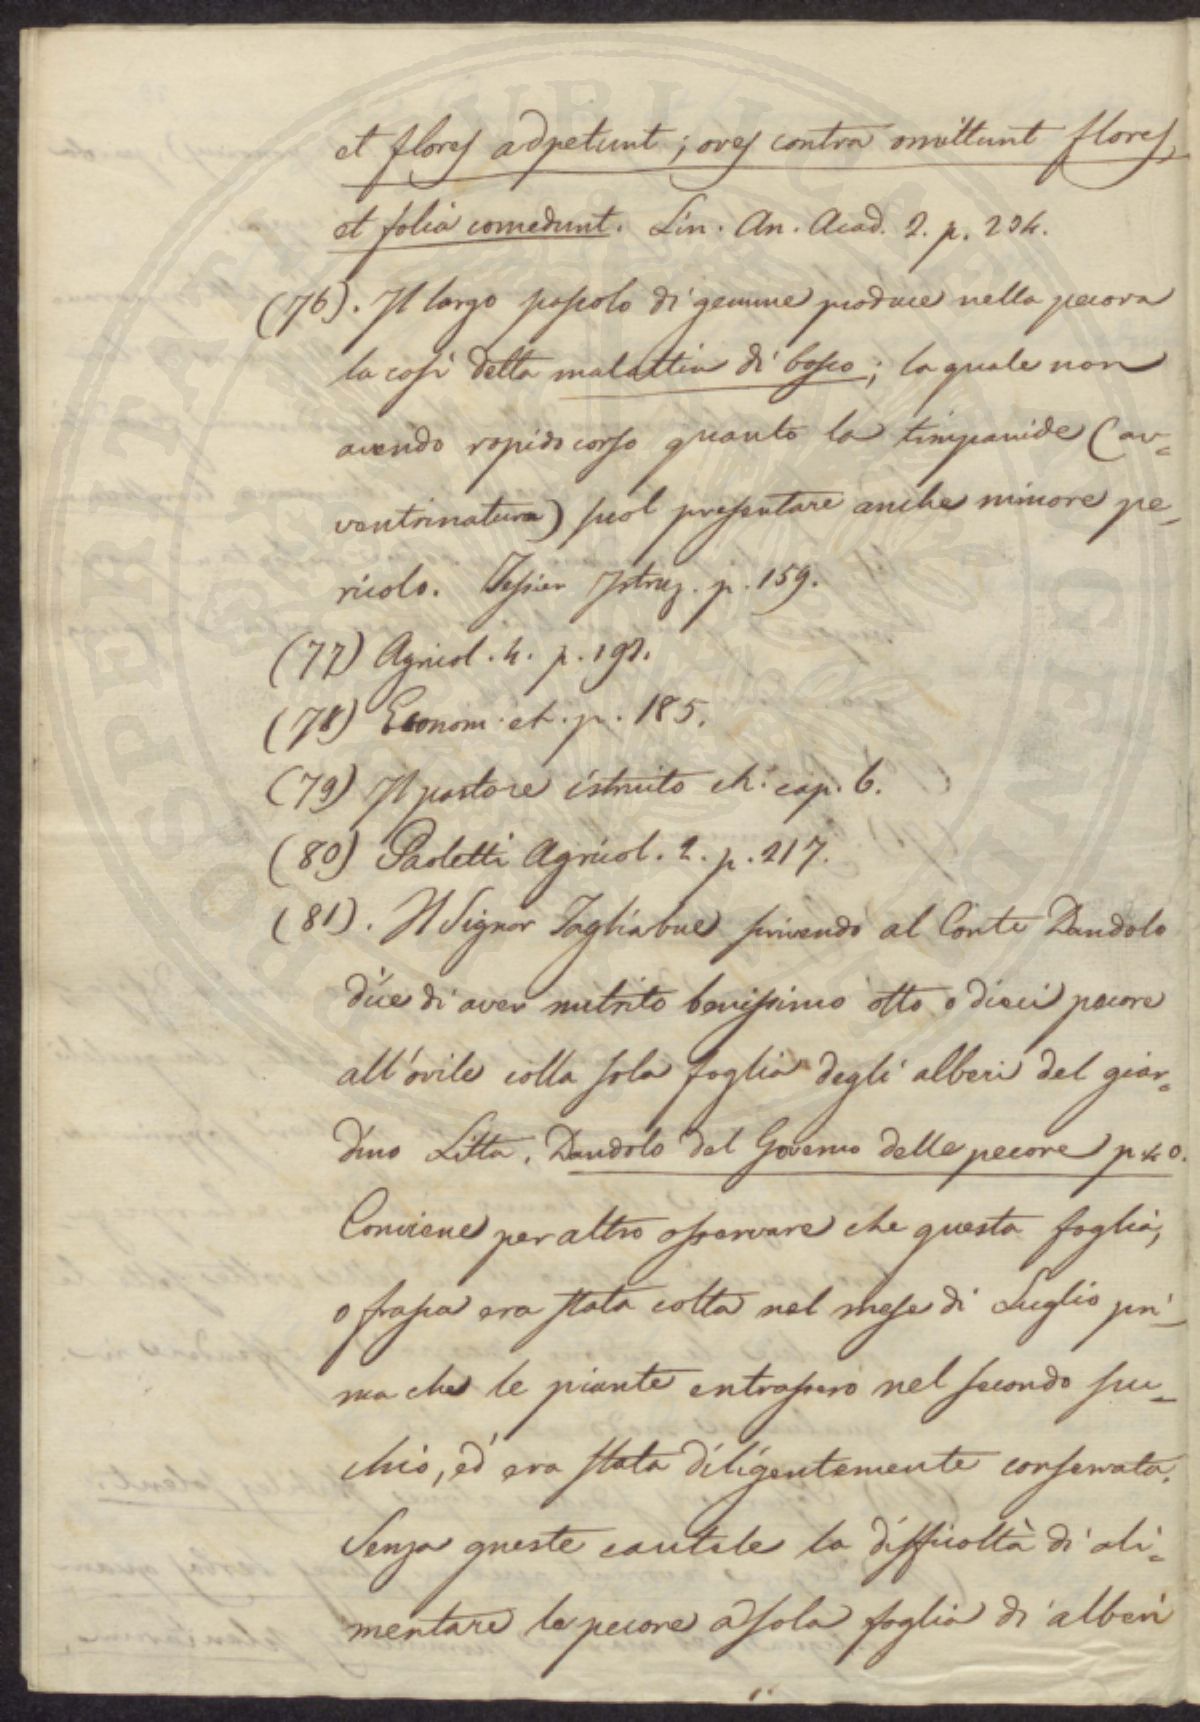 et flores adpetunt; oves contra omittunt flores,
et folia comedunt. Lin. An. Acad. 2. p. 204.
(76). Il largo pascolo di gemme produce nella pecora
la così detta malattia di bosco; la quale non
avendo rapido corso quanto la timpanide (av=
ventrinatura) suol presentare anche minore pe=
ricolo. Tessier Istruz. p. 159.
(77) Agricol. 4. p. 198.
(78) Econom. et. p. 185.
(79) Il pastore istruito et. cap. 6.
(80) Paoletti Agricol. 2. p. 217.
(81). Il Signor Tagliabue scrivendo al Conte Dandolo
dice di aver nutrito benissimo otto o dieci pecore
all'ovile colla sola foglia degli alberi del giar=
dino Litta. Dandolo del Governo delle pecore p 40.
Conviene per altro osservare che questa foglia,
o frasca era stata colta nel mese di Luglio pri=
ma che le piante entrassero nel secondo suc=
chio, ed era stata diligentemente conservata.
Senza queste cautele la difficoltà di ali=
mentare le pecore a sola foglia di alberi